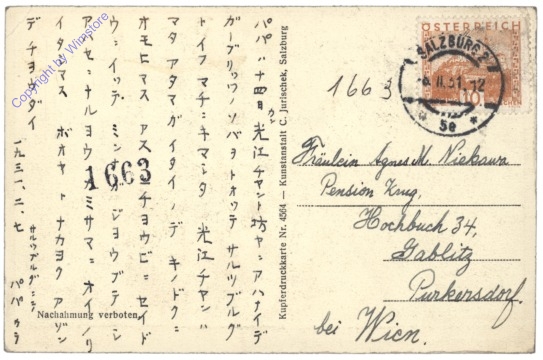 パパハ十四日光江チャント坊ヤニアハナイデ
ガーブリッツノソバヲトオッテサルツブルグ
トイフマチニキマシタ 光江チャンハ
マタアタマガイタイノデキノドクニ
オモヒマス アスニチヨウビニセイド
ウニイッテミンナガジヨウブデシ
アハセニナルヨウカミサマニオイノリ
イタシマス ボオヤトナカヨクアソン
デチョウダイ
一九三一、二、七 サルツブルグニテ
パパカラ
1663
Nachahmung verboten.
Copyright by Wimstore
Kupferdruckkarte Nr. 4564 — Kunstanstalt C. Jurischek, Salzburg
1663
ÖSTERREICH
SALZBURG 2
II.31.-12
5e
Fräulein Agnes M. Niekawa
Pension Krug,
Hochbuch 34,
Gablitz
Purkersdorf.
bei Wien.